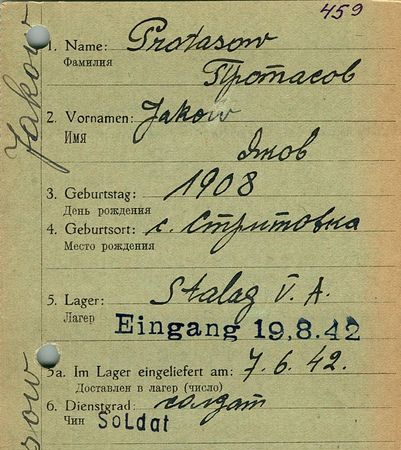 459
1. Name: Protasow
Фамилия
Протасов
2. Vornamen: Jakow
Имя
Яков
3. Geburtstag: 1908
День рождения
4. Geburtsort: с. Стритовка
Место рождения
5. Lager: Stalag V. A.
Лагерь
Eingang 19.8.42
5a. Im Lager eingeliefert am: 7.6.42.
Доставлен в лагерь (число)
6. Dienstgrad: солдат
Чин Soldat
Jakow
sow